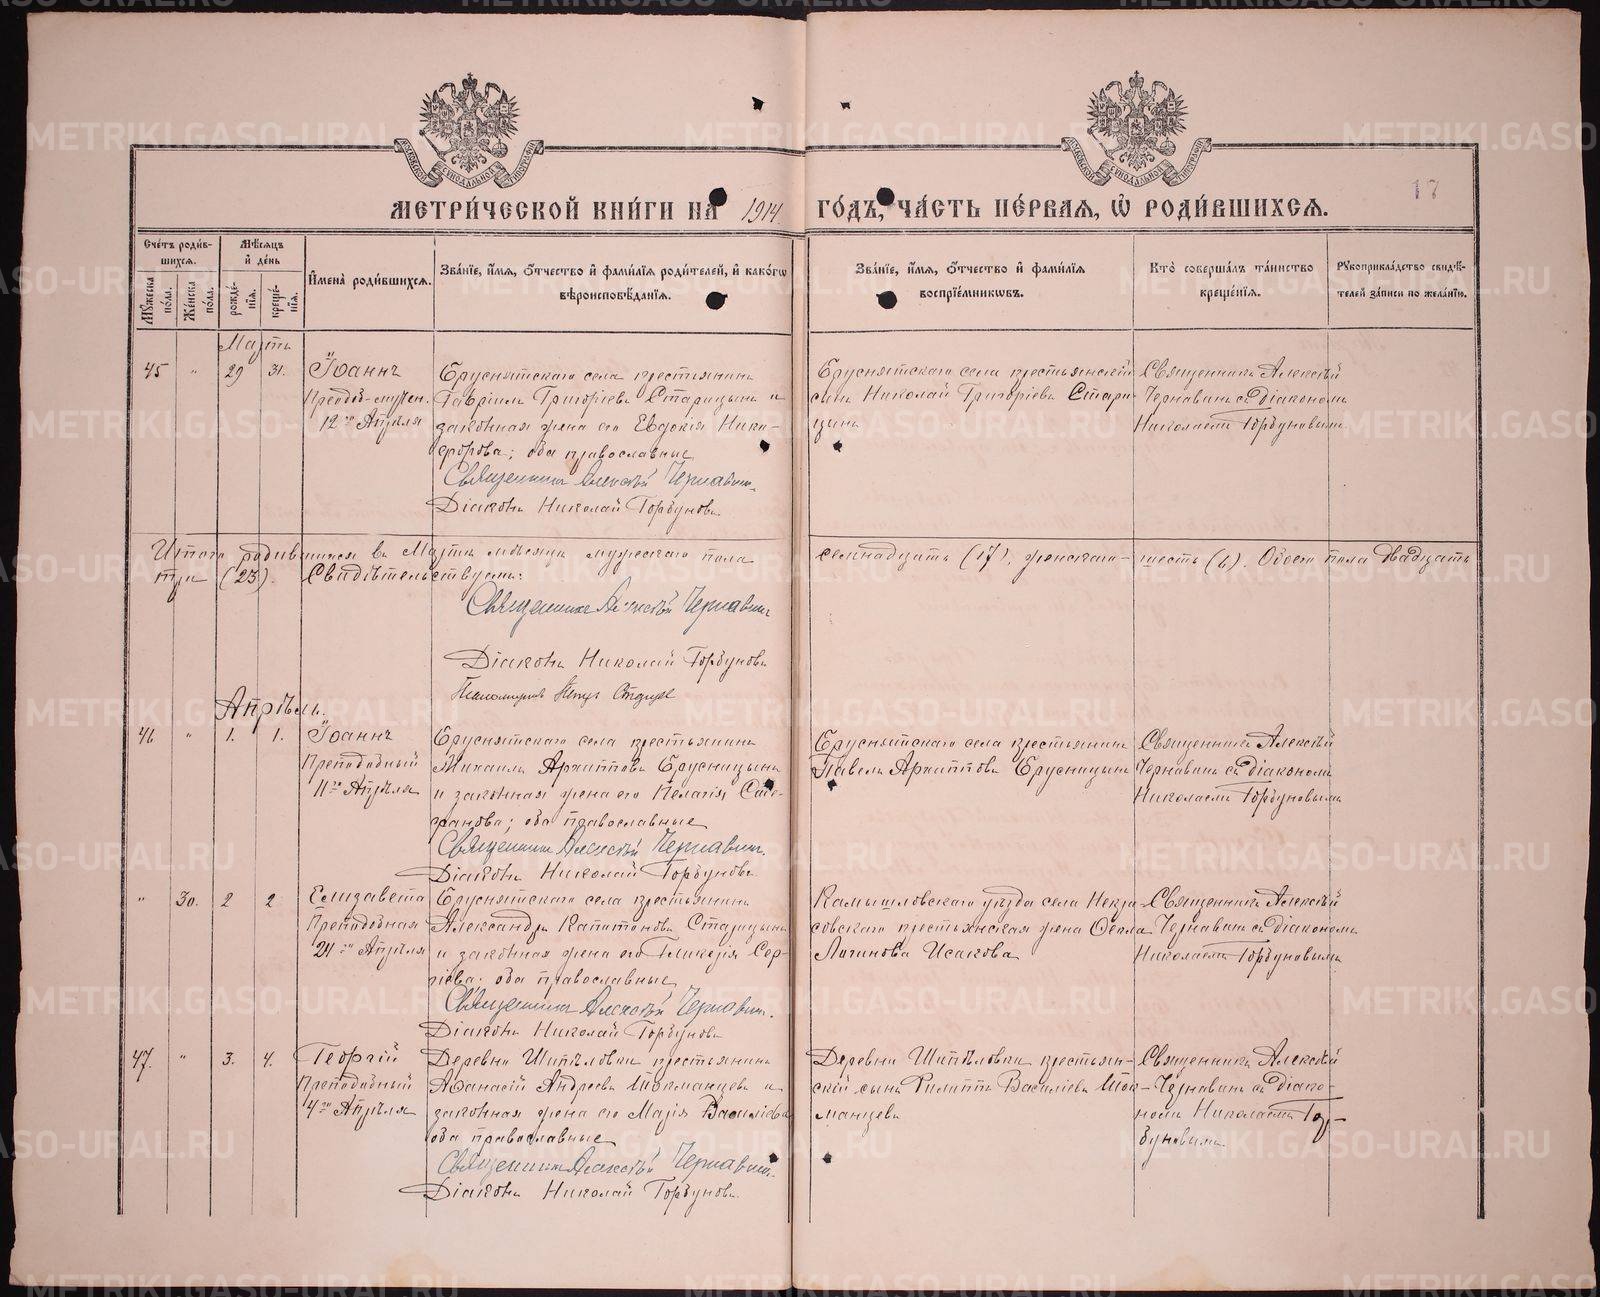 МЕТРИ́ЧЕСКОЙ КНИ́ГИ НА 1914 ГО́ДЪ, ЧА́СТЬ ПЕ́РВАЯ, Ѡ РОДИ́ВШИХСЯ.
17
Сче́тъ роди́вшихся.
Му́жеска по́ла.
Же́нска по́ла.
Мѣ́сяцъ и де́нь
рожде́нїя.
креще́нїя.
Имена̀ роди́вшихся.
Зва́нїе, и́мя, о́тчество и фами́лїя роди́телей, и како́гѡ
вѣроисповѣ́данїя.
Зва́нїе, и́мя, о́тчество и фами́лїя
воспрїе́мникѡвъ.
Кто̀ соверша́лъ та́инство
креще́нїя.
Рукоприкла́дство свидѣ́-
телей за́писи по жела́нїю.
Мартъ
45 " 29 31.
Іоаннъ
12го Апрѣля
Бруснятскаго села крестьянинъ
Гавріилъ Григоріевъ Старицынъ и
законная жена его Евдокія Ники-
форова; оба православные
Священникъ Алексѣй Чернавинъ.
Діаконъ Николай Горбуновъ
Бруснятскаго села крестьянскій
сынъ Николай Григоріевъ Стари-
цынъ
Священникъ Алексѣй
Чернавинъ съ діакономъ
Николаемъ Горбуновымъ
Итого родившихся въ Мартѣ мѣсяцѣ мужескаго пола семнадцать (17), женскаго - шесть (6). Обоего пола двадцать
три (23). Свидѣтельствуемъ:
Священникъ Алексѣй Чернавинъ
Діаконъ Николай Горбуновъ
Псаломщикъ
Апрѣль.
46 " 1. 1.
Іоаннъ
Преподобный
11го Апрѣля
Бруснятскаго села крестьянинъ
Михаилъ Архипповъ Брусницынъ
и законная жена его Пелагія Сте-
фанова; оба православные
Священникъ Алексѣй Чернавинъ.
Діаконъ Николай Горбуновъ
Бруснятскаго села крестьянинъ
Павелъ Архипповъ Брусницынъ
Священникъ Алексѣй
Чернавинъ съ діакономъ
Николаемъ Горбуновымъ
" 30. 2 2
Елизавета
Преподобная
24го Апрѣля
Бруснятскаго села крестьянинъ
Александръ Капитоновъ Старицынъ
и законная жена его Гликерія Сер-
гіева; оба православные
Священникъ Алексѣй Чернавинъ.
Діаконъ Николай Горбуновъ
Камышловскаго уѣзда села Некра-
совскаго крестьянская жена Ѳекла
Логинова Исакова
Священникъ Алексѣй
Чернавинъ съ діакономъ
Николаемъ Горбуновымъ
47. " 3. 4.
Георгій
Преподобный
4го Апрѣля
Деревни Шипѣловки крестьянинъ
Аѳанасій Андреевъ Токманцевъ и
законная жена его Марія Василіева
оба православные
Священникъ Алексѣй Чернавинъ.
Діаконъ Николай Горбуновъ.
Деревни Шипѣловки крестьян-
скій сынъ Филиппъ Василіевъ Ток-
манцевъ
Священникъ Алексѣй
Чернавинъ съ діако-
номъ Николаемъ Гор-
буновымъ.
METRIKI.GASO-URAL.RU